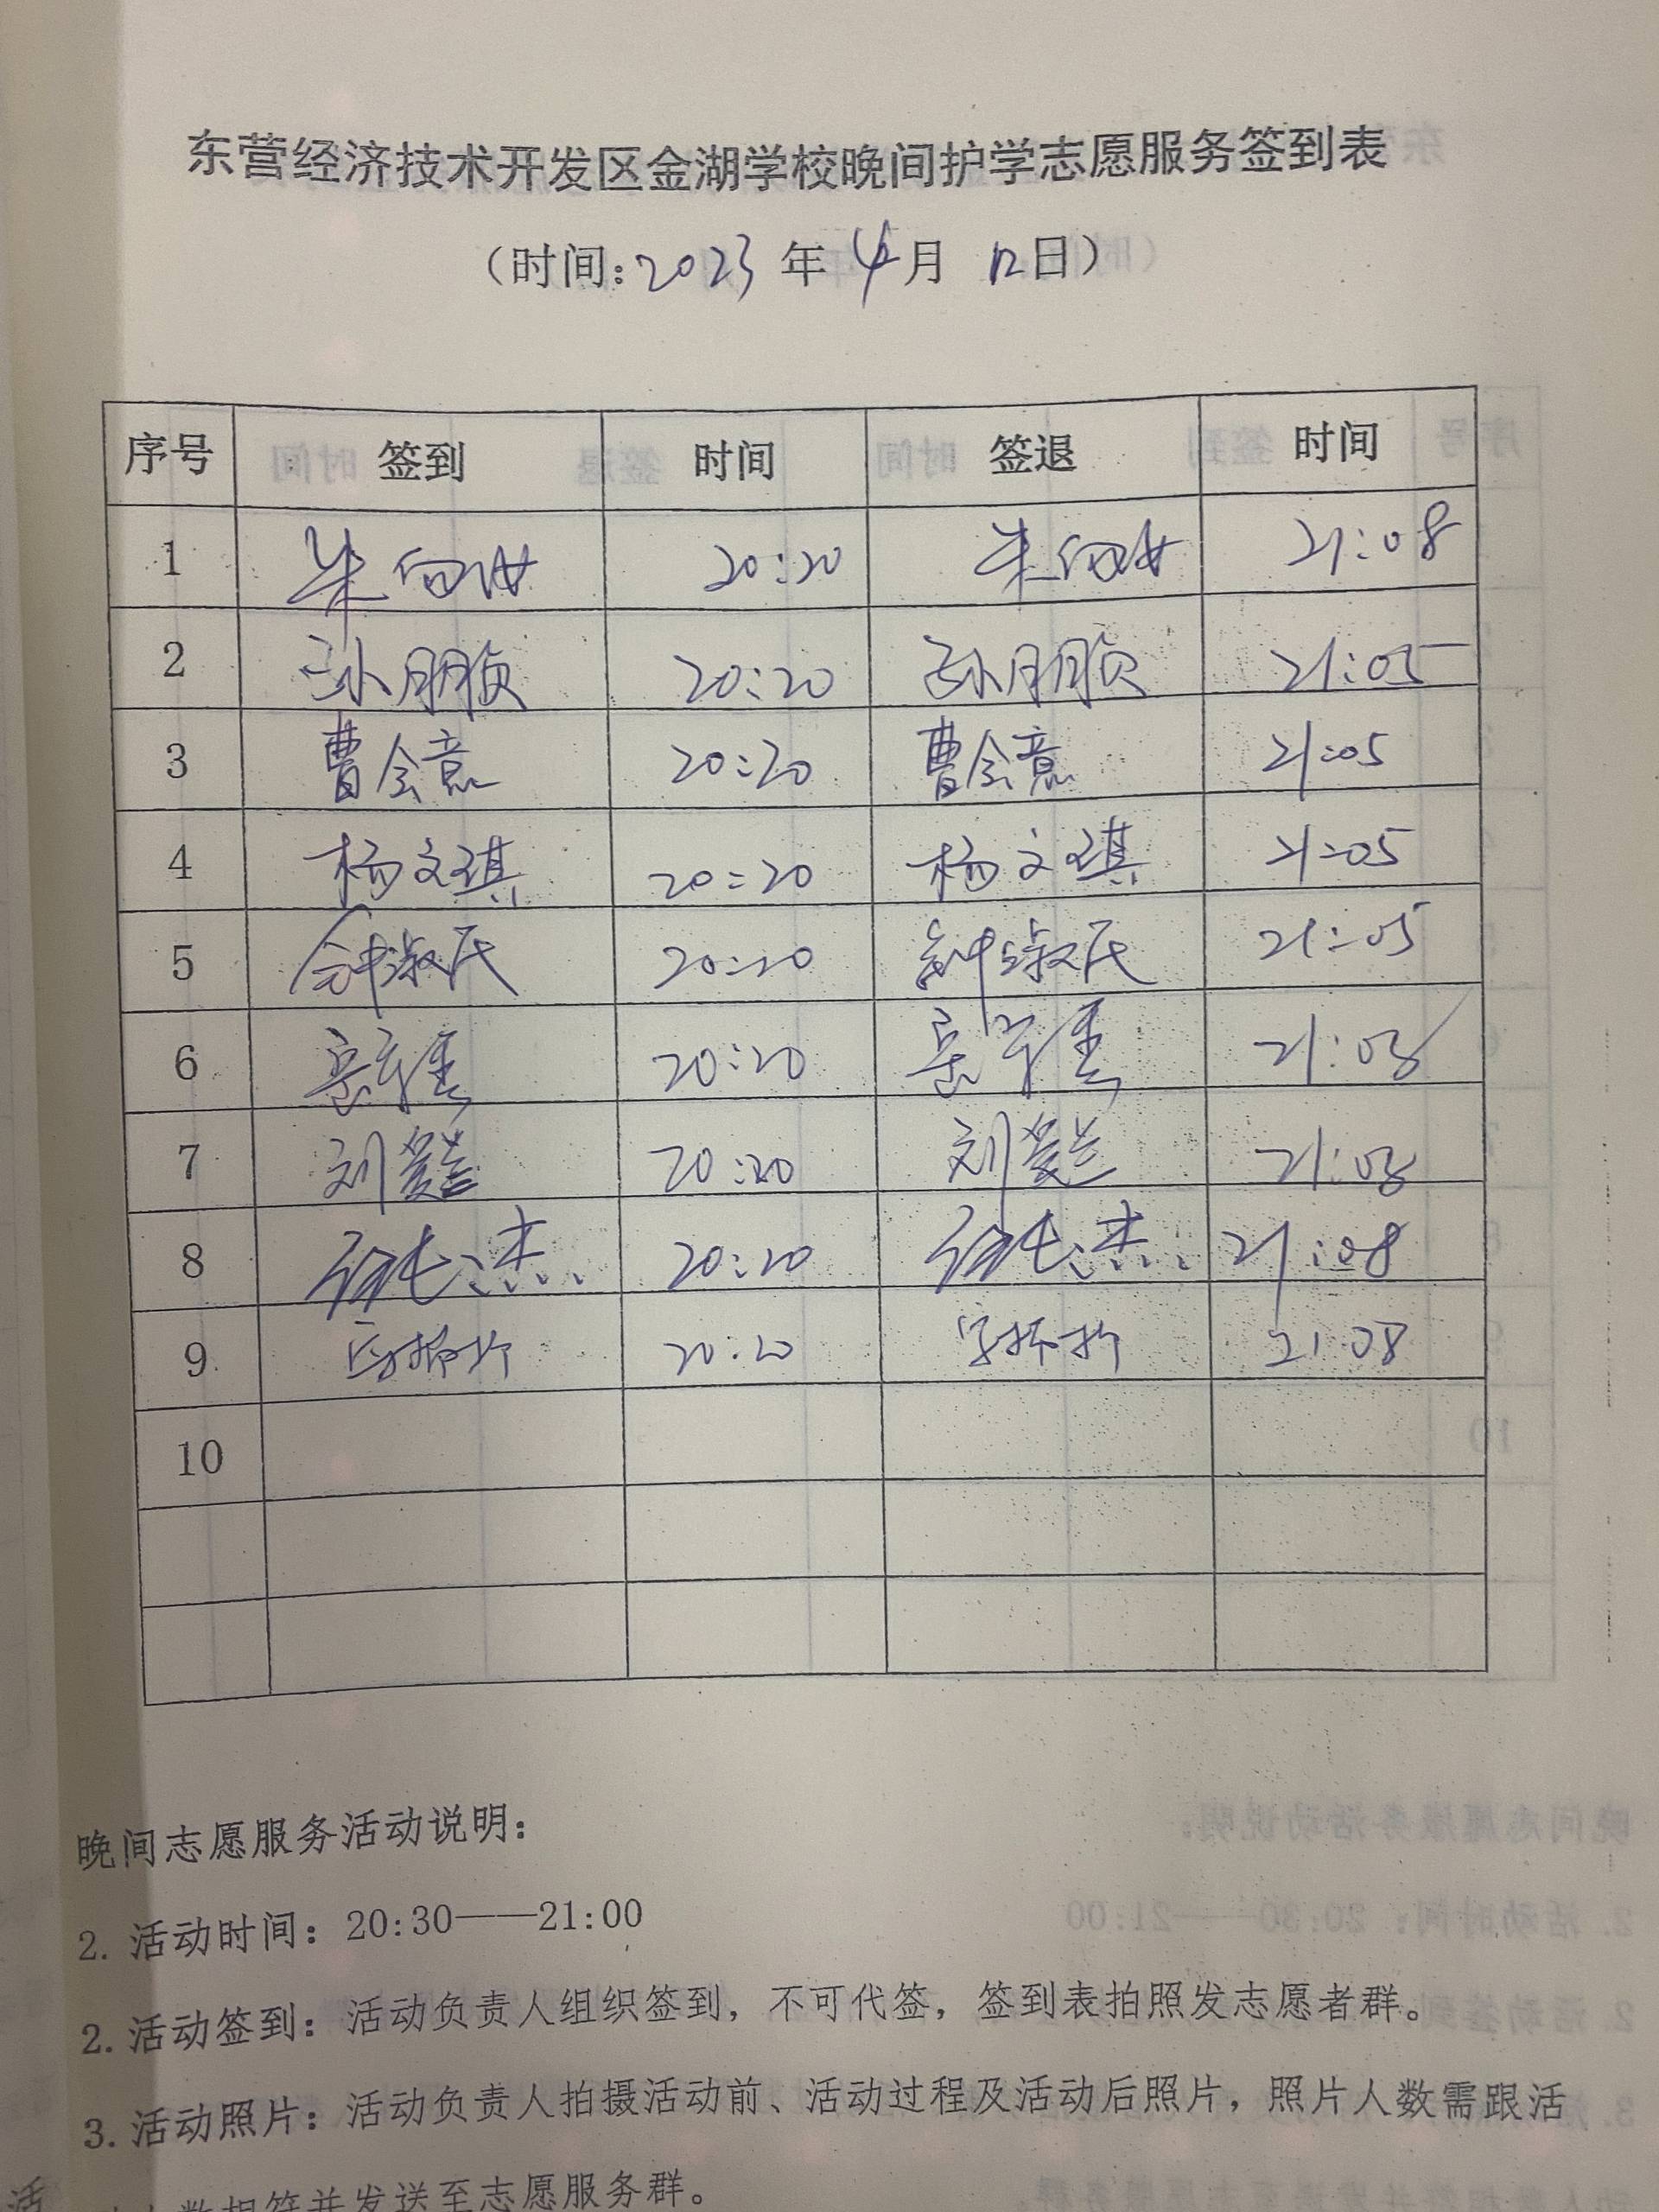 东营经济技术开发区金湖学校晚间护学志愿服务签到表
（时间:2023年4月12日）
序号 签到 时间 签退 时间
1 朱 20:20 朱 21:08
2 孙朋颀 20:20 孙朋颀 21:05
3 曹会意 20:20 曹会意 21:05
4 杨文琪 20:20 杨文琪 21:05
5 钟淑民 20:20 钟淑民 21:05
6 20:20 21:08
7 刘 20:20 刘 21:08
8 20:20 21:08
9 20:20 21:08
10
晚间志愿服务活动说明：
2. 活动时间：20:30——21:00
2. 活动签到：活动负责人组织签到，不可代签，签到表拍照发志愿者群。
3. 活动照片：活动负责人拍摄活动前、活动过程及活动后照片，照片人数需跟活
数相符并发送至志愿服务群。